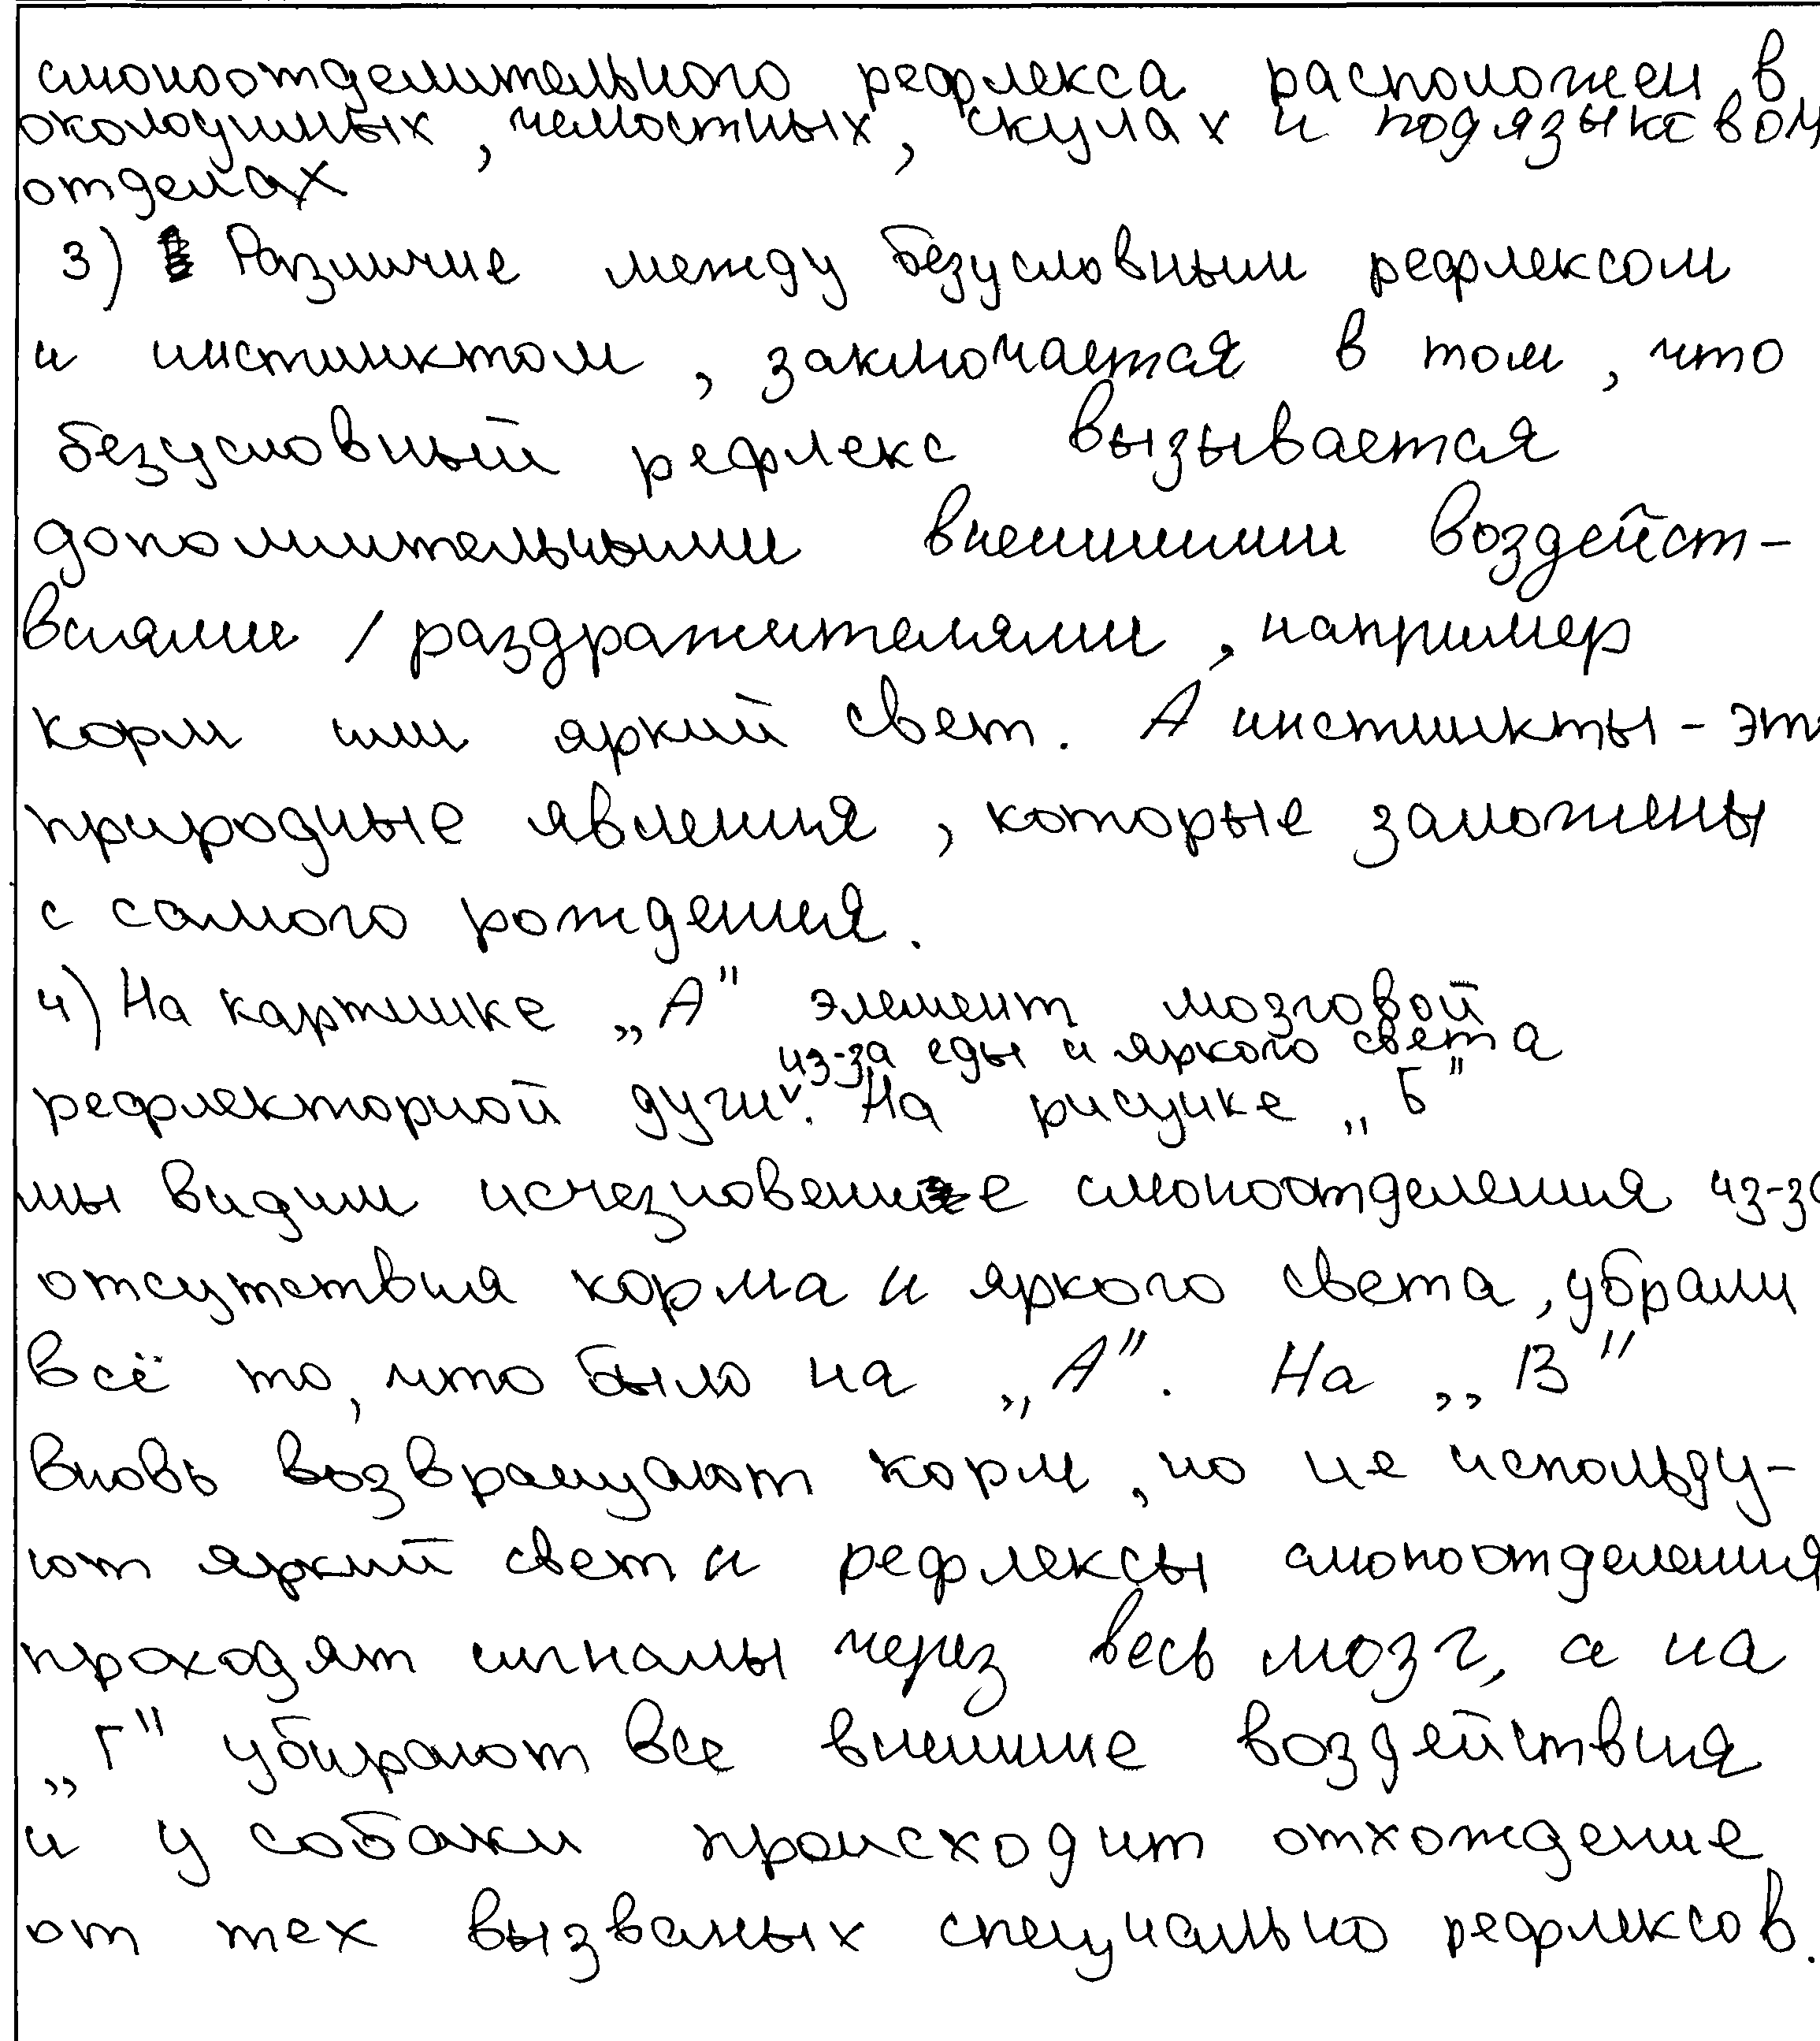 слюноотделительного рефлекса расположен в
околоушных, челюстных, скулах и подязыковом
отделах
3) Различие между безусловным рефлексом
и инстинктом, заключается в том, что
безусловный рефлекс вызывается
дополнительными внешними воздейст-
виями / раздражителями, например
корм или яркий свет. А инстинкты - эт
природные явления, которые заложены
с самого рождения.
4) На картинке „А" элемент мозговой
из-за еды и яркого света
рефлекторной дуги. На рисунке „Б"
мы видим исчезновение слюноотделения из-за
отсутствия корма и яркого света, убрали
всё то, что было на „А". На „В"
вновь возвращают корм, но не использу-
ют яркий свет и рефлексы слюноотделения
проходят сигналы через весь мозг, а на
„Г" убирают все внешние воздействия
и у собаки происходит отхождение
от тех вызваных специально рефлексов.